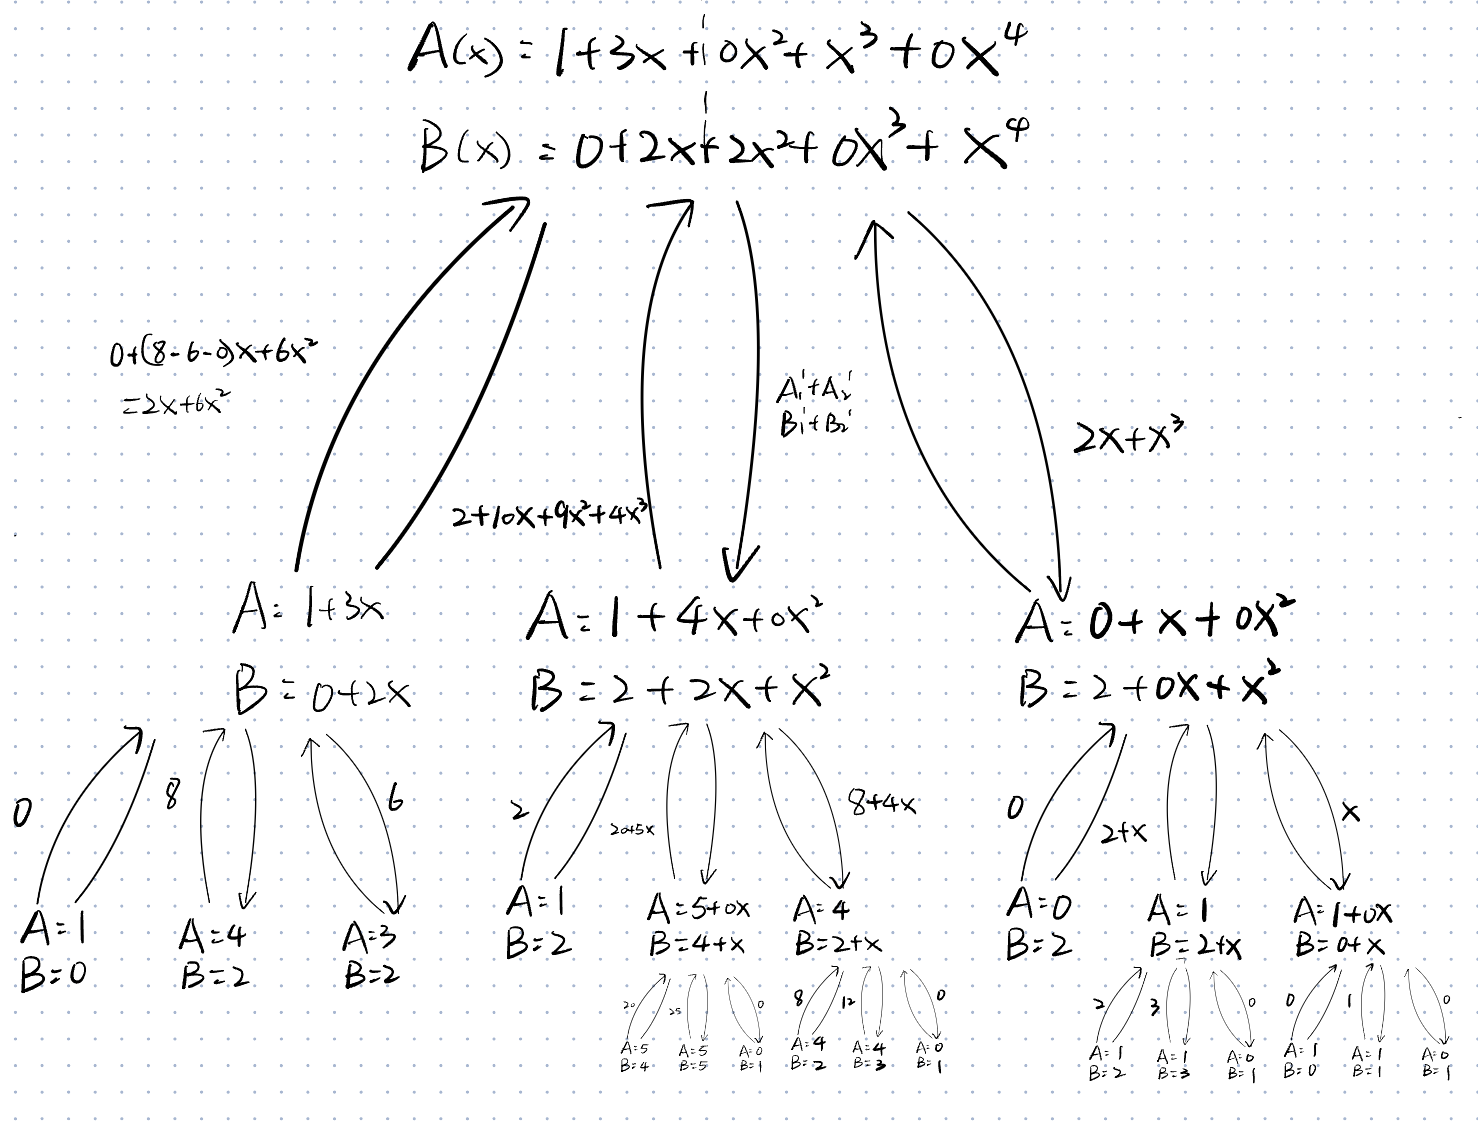 A(x) = 1+3x+0x²+x³+0x⁴
B(x) = 0+2x+2x²+0x³+x⁴
0+(8-6-0)x+6x²
=2x+6x²
A₁'+A₂'
B₁'+B₂'
2x+x³
2+10x+9x²+4x³
A=1+3x
B=0+2x
A=1+4x+0x²
B=2+2x+x²
A=0+x+0x²
B=2+0x+x²
0
8
6
2
20+5x
8+4x
0
2+x
x
A=1
B=0
A=4
B=2
A=3
B=2
A=1
B=2
A=5+0x
B=4+x
A=4
B=2+x
A=0
B=2
A=1
B=2+x
A=1+0x
B=0+x
20
25
0
8
12
0
2
3
0
0
1
0
A=5
B=4
A=5
B=5
A=0
B=1
A=4
B=2
A=4
B=3
A=0
B=1
A=1
B=2
A=1
B=3
A=0
B=1
A=1
B=0
A=1
B=1
A=0
B=1